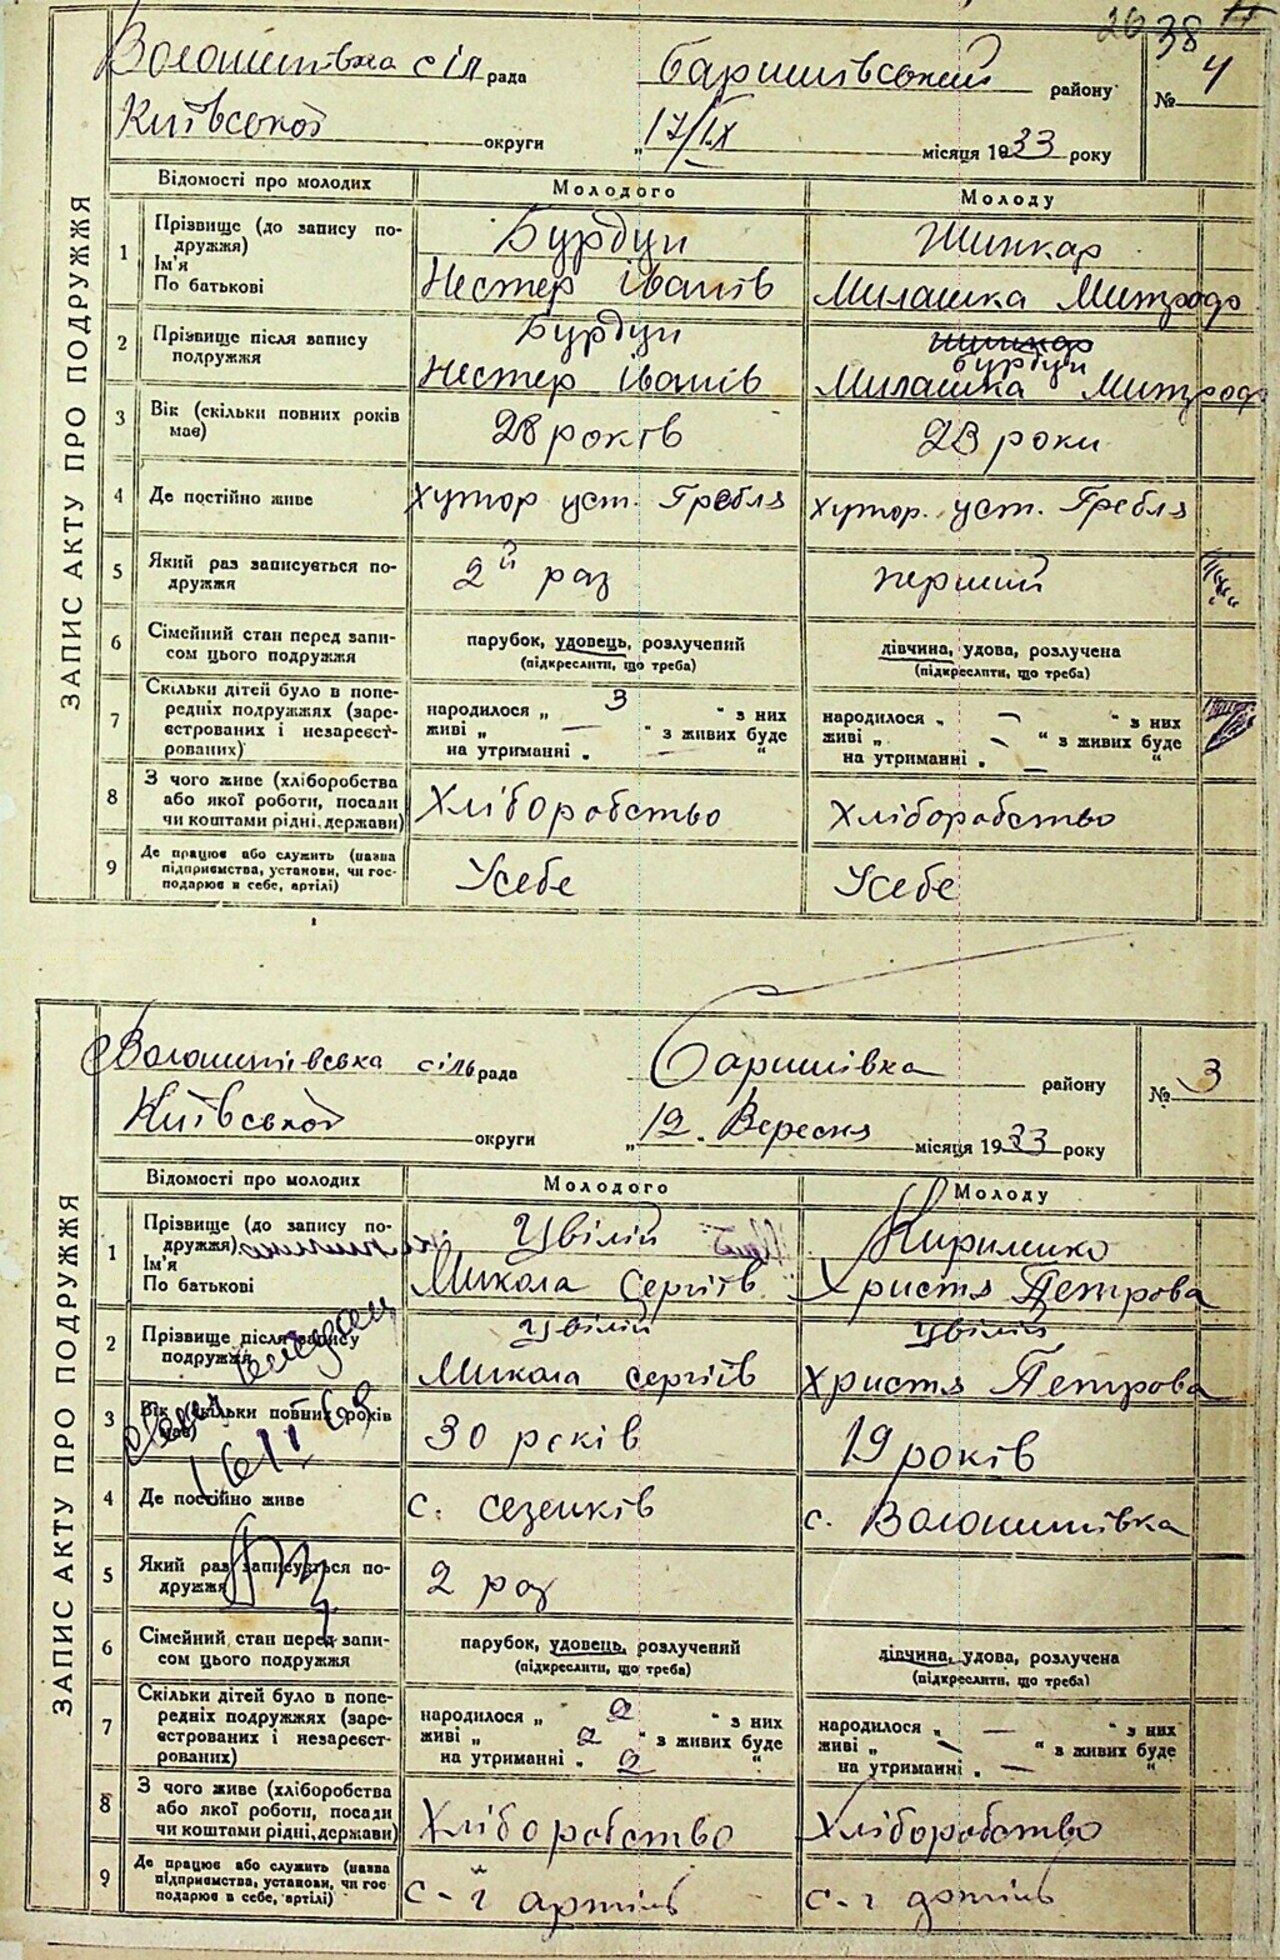 26 38
Волошинівка сіл рада Баришівський району
№ 4
Київської округи „17/IX місяця 1933 року
ЗАПИС АКТУ ПРО ПОДРУЖЖЯ
Відомості про молодих Молодого Молоду
1 Прізвище (до запису подружжя) Бурдун Шинкар
Ім'я
По батькові Нестер Іванів Милашка Митрофо
2 Прізвище після запису Бурдун шинкар
подружжя бурдун
Нестер іванів Милашка Митроф
3 Вік (скільки повних років 28 років 23 роки
має)
4 Де постійно живе Хутор уст. Гребля Хутор. уст. Гребля
5 Який раз записується по- 2й раз перший
дружжя
6 Сімейний стан перед запи- парубок, удовець, розлучений дівчина, удова, розлучена
сом цього подружжя (підкреслити, що треба) (підкреслити, що треба)
7 Скільки дітей було в попе- народилося „ 3 “ з них народилося „ — “ з них
редніх подружжях (заре- живі „ — “ з живих буде живі „ — “ з живих буде
єстрованих і незареєст- на утриманні „ — “ на утриманні „ — “
рованих)
8 З чого живе (хліборобства Хліборобство Хліборобство
або якої роботи, посади
чи коштами рідні, держави)
9 Де працює або служить (назва Усебе Усебе
підприємства, установи, чи гос-
подарює в себе, артілі)
Волошинівська сільрада Баришівка району
№ 3
Київської округи „12. Вересня місяця 1933 року
ЗАПИС АКТУ ПРО ПОДРУЖЖЯ
Відомості про молодих Молодого Молоду
1 Прізвище (до запису по- Цвілій Кириленко
дружжя)
Ім'я
По батькові Микола Сергіїв Христя Петрова
2 Прізвище після запису Цвілій Цвілій
подружжя Микола сергіїв Христя Петрова
3 Вік (скільки повних років 30 років 19 років
має)
4 Де постійно живе с. сезенків с. Волошинівка
5 Який раз записується по- 2 раз
дружжя
6 Сімейний стан перед запи- парубок, удовець, розлучений дівчина, удова, розлучена
сом цього подружжя (підкреслити, що треба) (підкреслити, що треба)
7 Скільки дітей було в попе- народилося „ 2 “ з них народилося „ — “ з них
редніх подружжях (заре- живі „ 2 “ з живих буде живі „ — “ з живих буде
єстрованих і незареєст- на утриманні „ 2 “ на утриманні „ — “
рованих)
8 З чого живе (хліборобства Хліборобство Хліборобство
або якої роботи, посади
чи коштами рідні, держави)
9 Де працює або служить (назва с-г артіль с-г артіль
підприємства, установи, чи гос
подарює в себе, артілі)